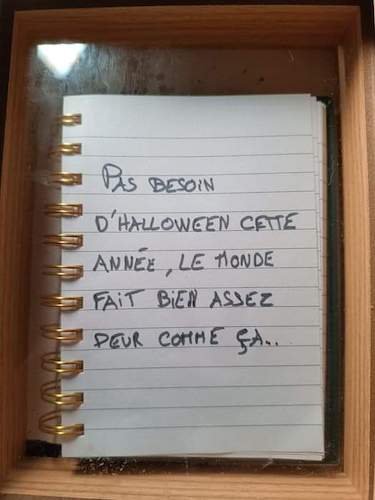 PAS BESOIN
D'HALLOWEEN CETTE
ANNÉE, LE MONDE
FAIT BIEN ASSEZ
PEUR COMME ÇA..